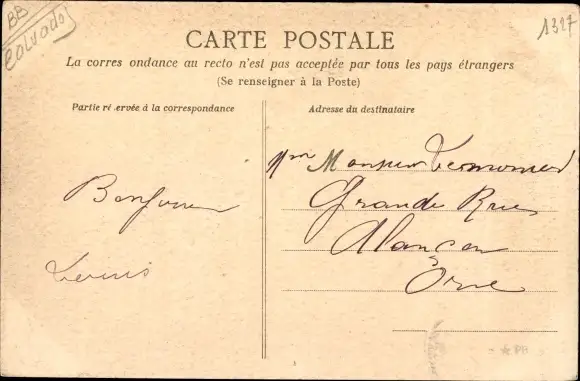 BB
Calvados
1327
CARTE POSTALE
La corres ondance au recto n'est pas acceptée par tous les pays étrangers
(Se renseigner à la Poste)
Partie ré ervée à la correspondance
Adresse du destinataire
Monsieur
Grande Rue
Alançon
Orne
Bonjour